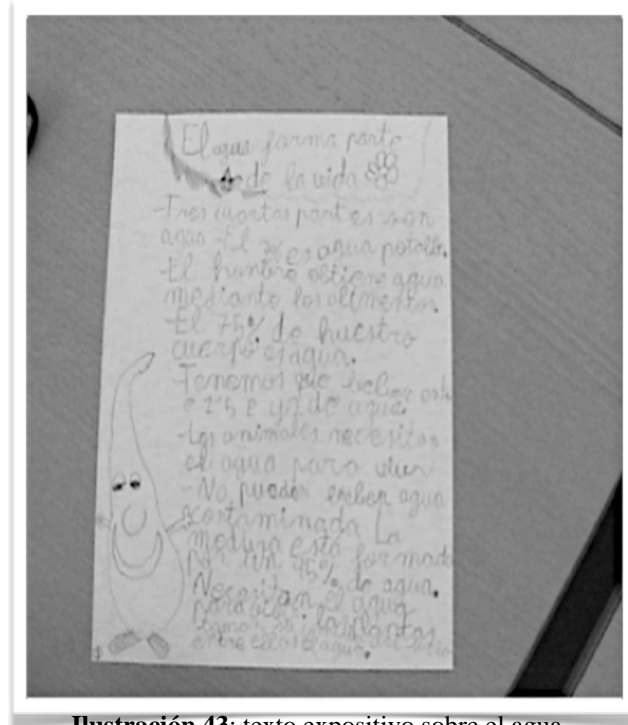 El agua forma parte
de la vida
-Tres cuartas partes son
agua -El 3% es agua potable.
-El hombre obtiene agua
mediante los alimentos.
-El 75% de nuestro
cuerpo es agua.
-Tenemos que beber
2'5 y 2 de agua.
-Los animales necesitan
el agua para vivir
-No pueden beber agua
contaminada La
medusa está formada
por un 95% de agua.
Necesitan el agua
para vivir. las plantas
toman
entre ellas el agua.
Ilustración 43: texto expositivo sobre el agua